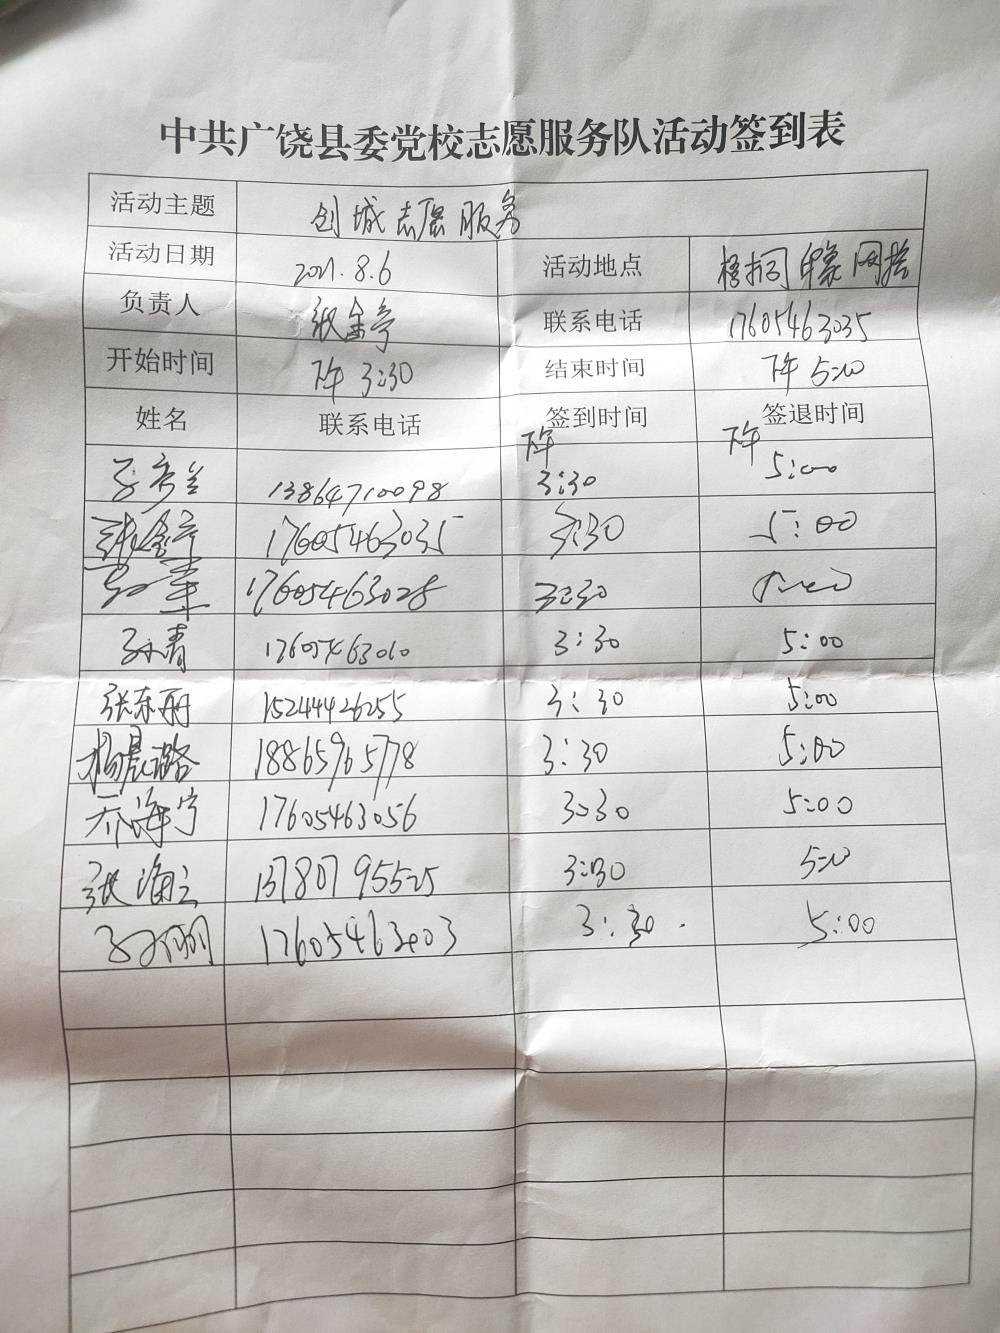 中共广饶县委党校志愿服务队活动签到表
活动主题 创城志愿服务
活动日期 2021.8.6 活动地点 梧桐 网格
负责人 张金亭 联系电话 17605463035
开始时间 下午 3:30 结束时间 下午 5:00
姓名 联系电话 签到时间 签退时间
下午 下午
13864710098 3:30 5:00
张金亭 17605463035 3:30 5:00
17605463028 3:30 5:00
孙青 17605463010 3:30 5:00
张东丽 15244426255 3:30 5:00
杨晨璐 18865965778 3:30 5:00
乔海宁 17605463056 3:30 5:00
张海云 13780795525 3:30 5:00
17605463003 3:30 5:00